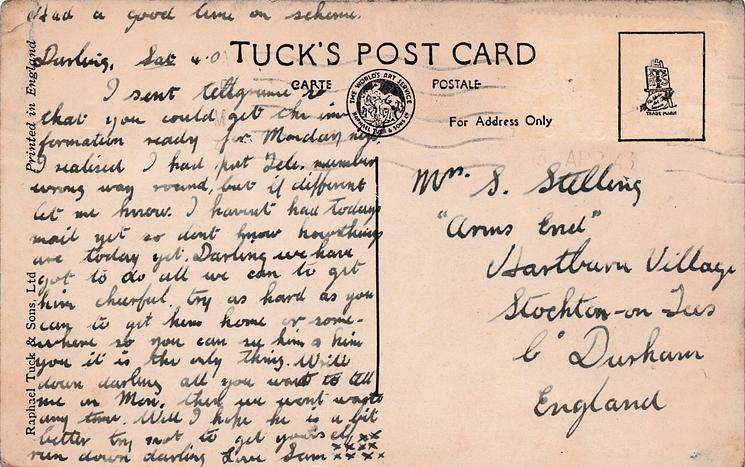 Had a good time on scheme.
Darling, Sat 4.0
I sent telegram so
that you could get the in-
formation ready for Monday
I realised I had put Tele. number
wrong way round, but if different
let me know. I havent had todays
mail yet so dont know how things
are today yet. Darling we have
got to do all we can to get
him cheerful. try as hard as you
can to get him home or some-
where so you can see him & him
you it is the only thing. Write
down darling all you want to tell
me on Mon. then we wont waste
any time. Well I hope he is a bit
better try not to get yourself
run down darling Love Sam xxxxxx
TUCK'S POST CARD
CARTE POSTALE
THE WORLD'S ART SERVICE
RAPHAEL TUCK & SONS LTD
For Address Only
TRADE MARK
Mrs. S. Stelling
"Arms End"
Hartburn Village
Stockton-on-Tees
Co Durham
England
Printed in England
Raphael Tuck & Sons, Ltd